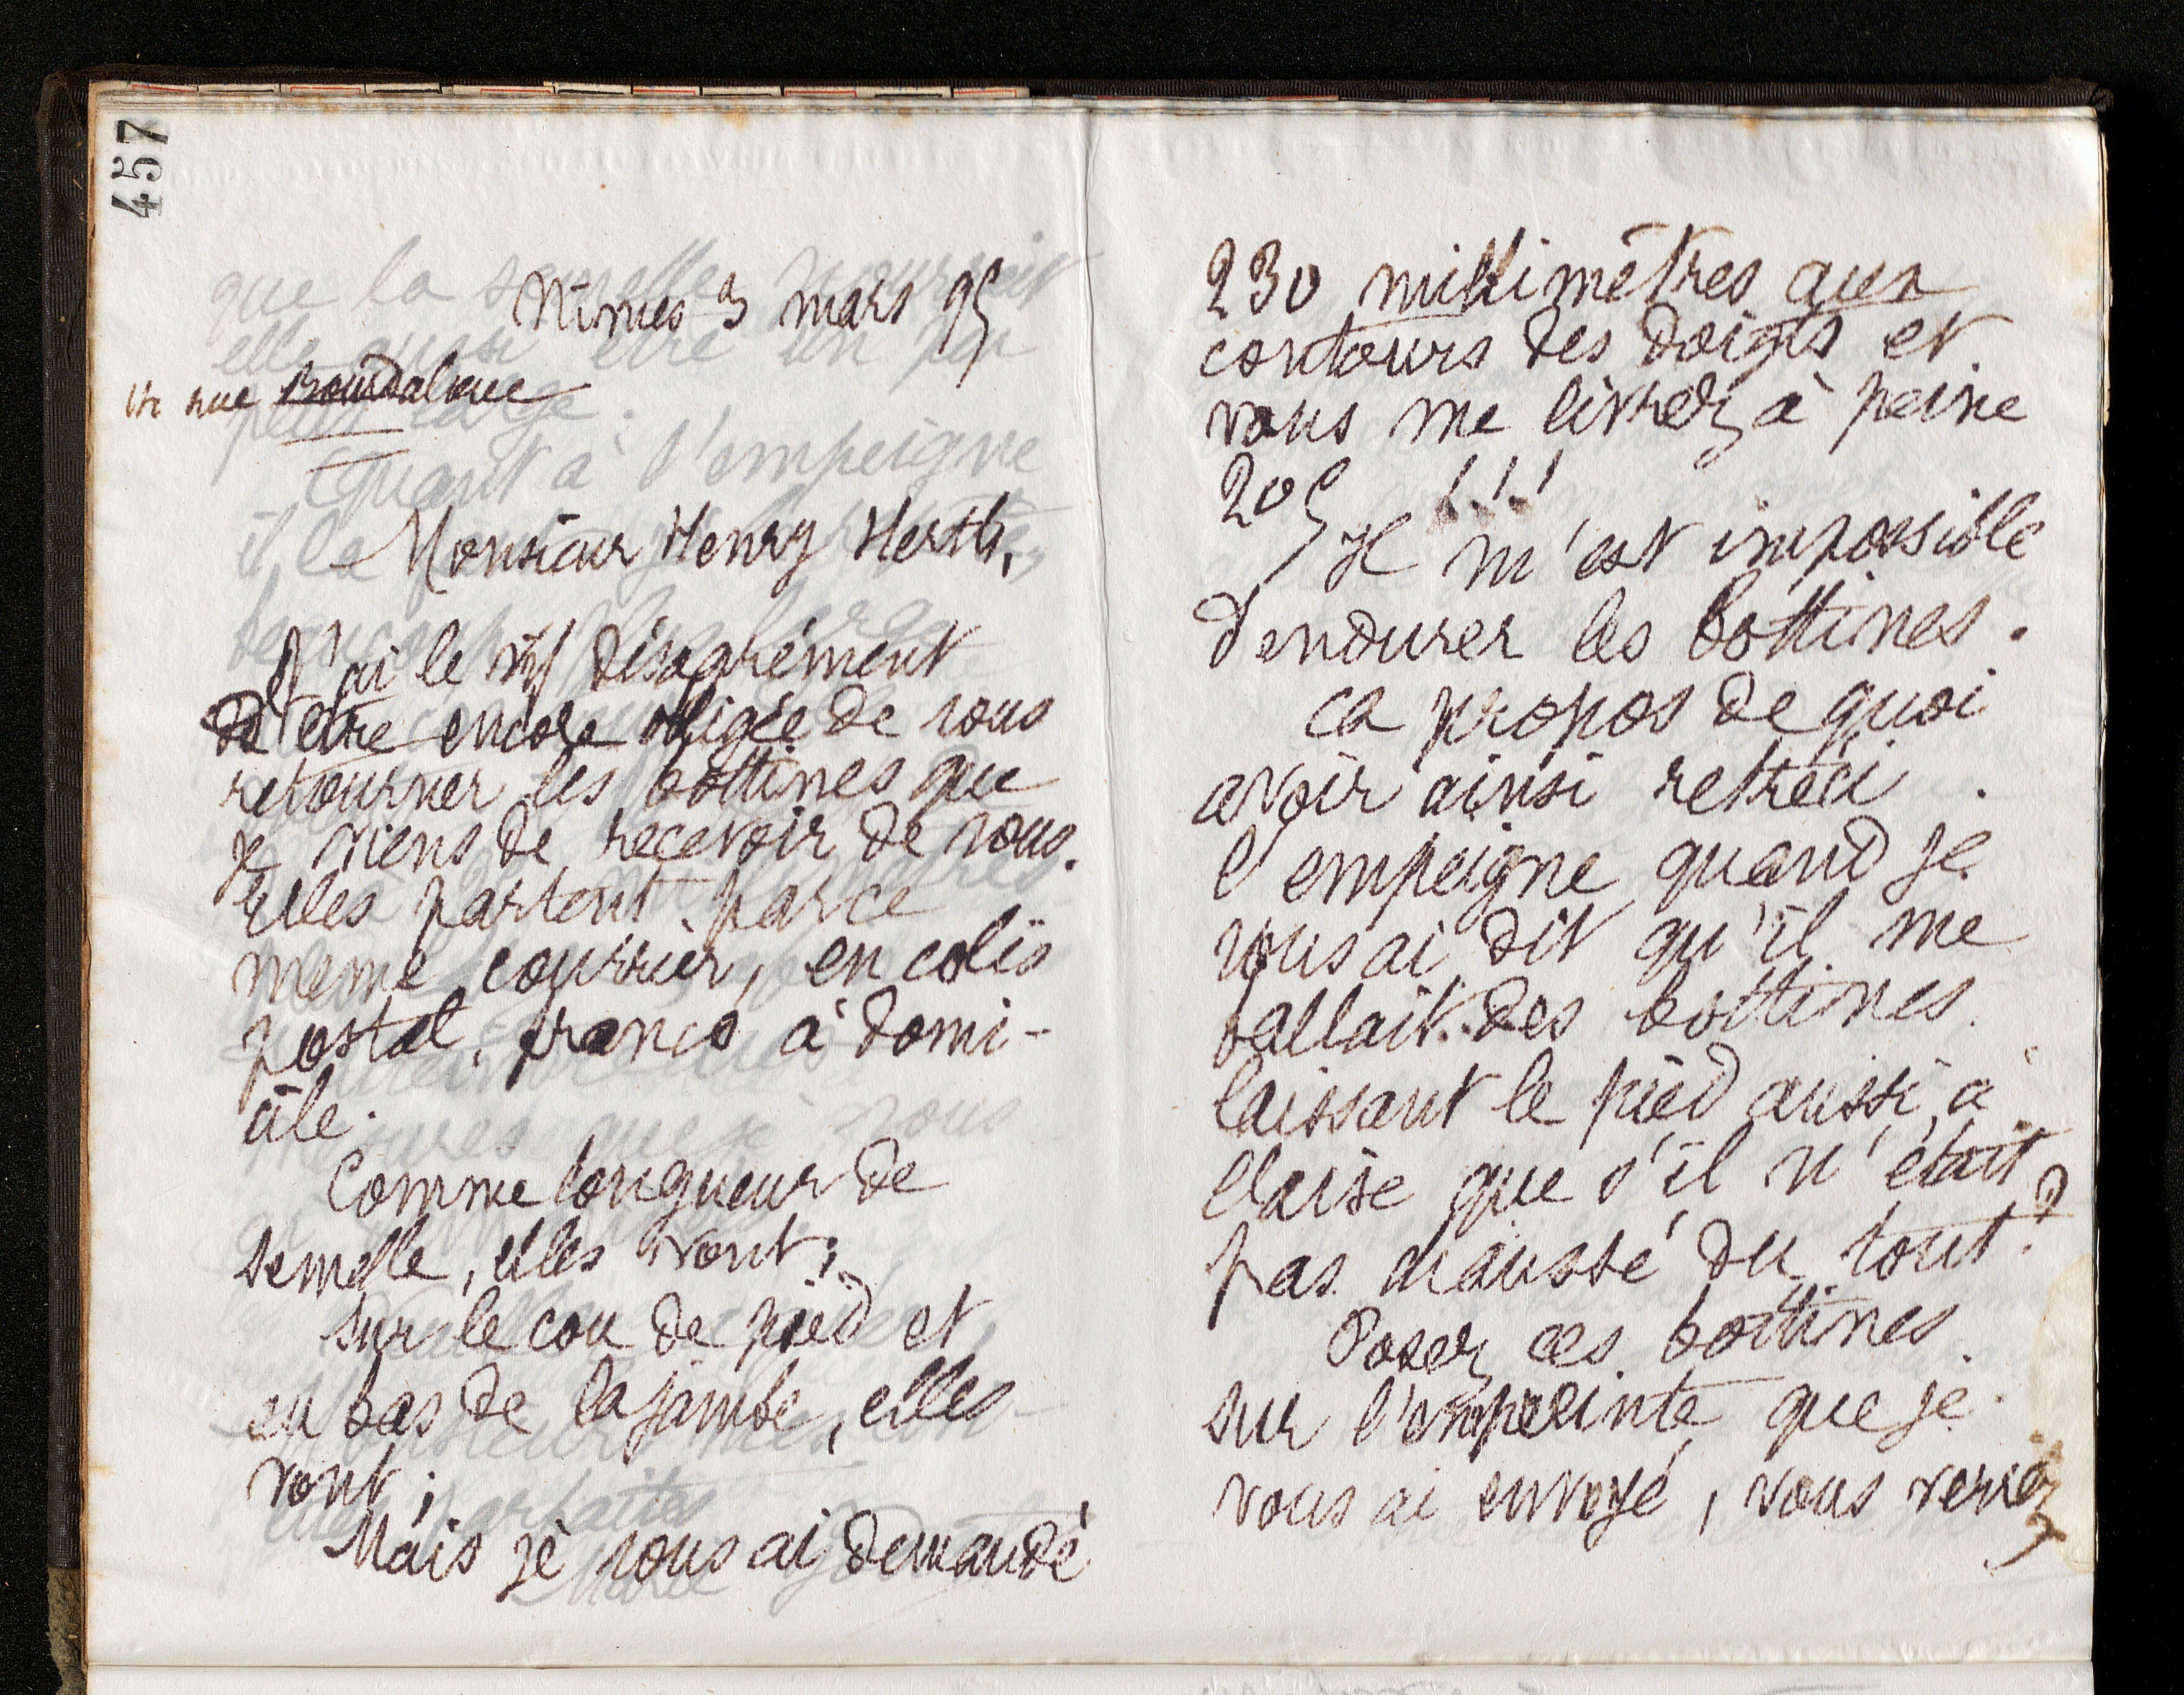 457
Nimes 3 mars 95
rue Bourdaloue
Monsieur Henry Herth,
J'ai le vif désagrément
d'être encore obligée de vous
retourner les bottines que
je viens de recevoir de vous.
Elles partent parce
meme courrier, en colis
postal, franco à domi-
cile.
Comme longueur de
semelle, elles vont;
sur le cou de pied et
en bas de la jambe, elles
vont;
Mais je vous ai demandé
230 millimètres aux
contours des doigts et
vous me livrez à peine
205 !!!
Il m'est impossible
d'endurer les bottines.
ca propos de quoi
avoir ainsi retréci
l'empeigne quand je
vous ai dit qu'il me
fallait des bottines
laissant le pied aussi à
l'aise que s'il n'était
pas chaussé du tout?
Posez ces bottines
sur l'empreinte que je
vous ai envoyé, vous verrez